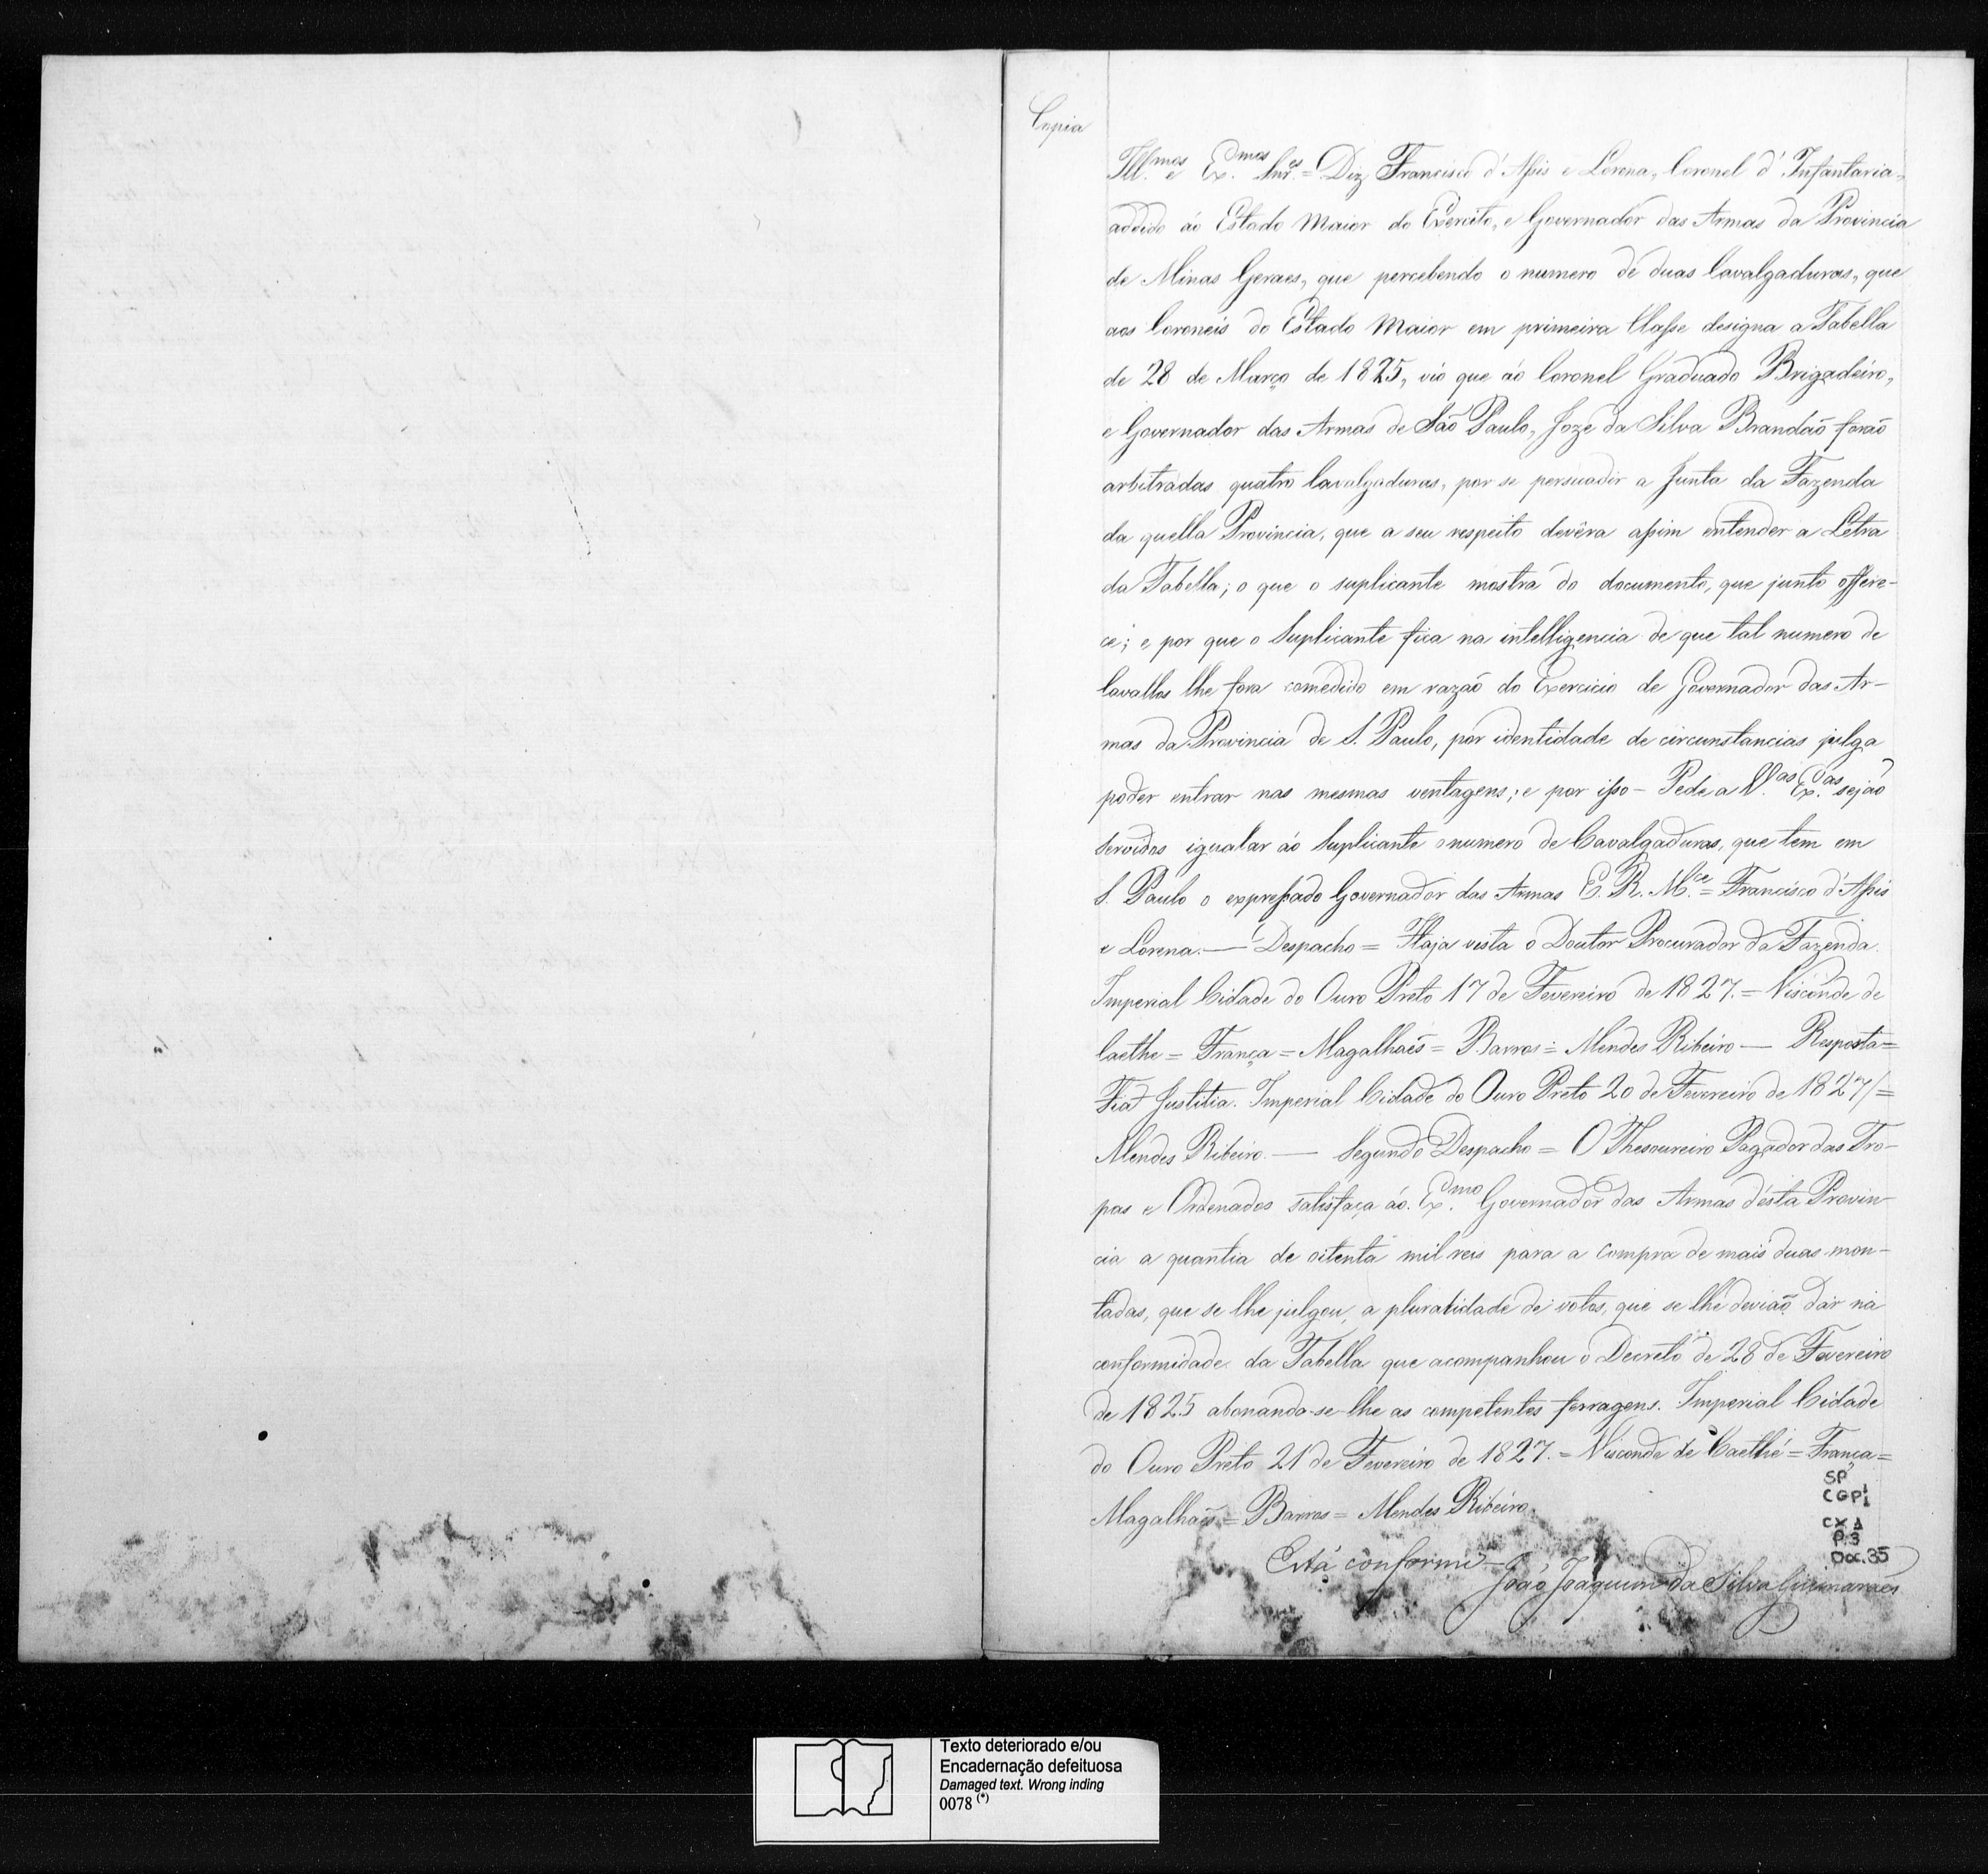 Copia
Ill.mos e Ex.mos Snr.es = Diz Francisco d'Assis e Lorena, Coronel d'Infantaria,
addido áo Estado Maior do Exercito, e Governador das Armas da Provincia
de Minas Geraes, que percebendo o numero de duas Cavalgaduras, que
aos Coroneis do Estado Maior em primeira Classe designa a Tabella
de 28 de Março de 1825, vio que áo Coronel Graduado Brigadeiro,
e Governador das Armas de São Paulo, Joze da Silva Brandão forão
arbitradas quatro Cavalgaduras, por se persuadir a Junta da Fazenda
da quella Provincia, que a seu respeito devêra assim entender a Letra
da Tabella; o que o suplicante mostra do documento, que junto offere-
ce; e por que o Suplicante fica na intelligencia de que tal numero de
Cavallos lhe fora comedido em razaõ do Exercicio de Governador das Ar-
mas da Provincia de S. Paulo, por identidade de circunstancias julga
poder entrar nas mesmas ventagens; e por isso - Pede a V.as Ex.as sejão
Servidos igualar áo Suplicante o numero de Cavalgaduras, que tem em
S. Paulo o expressado Governador das Armas E. R. M.ce = Francisco d'Assis
e Lorena. — Despacho = Haja vista o Doutor Procurador da Fazenda.
Imperial Cidade do Ouro Preto 17 de Fevereiro de 1827. = Visconde de
Caethe = França = Magalhaẽs = Barros = Mendes Ribeiro — Resposta =
Fiat Justitia. Imperial Cidade do Ouro Preto 20 de Fevereiro de 1827 / =
Mendes Ribeiro. — Segundo Despacho = O Thesoureiro Pagador das Tro-
pas e Ordenados satisfaça áo Ex.mo Governador das Armas désta Provin-
cia a quantia de oitenta mil reis para a compra de mais duas mon-
tadas, que se lhe julgou, a pluralidade de votos, que se lhe devião dar na
conformidade da Tabella que acompanhou o Decreto de 28 de Fevereiro
de 1825 abonando-se-lhe as competentes ferragens. Imperial Cidade
do Ouro Preto 21 de Fevereiro de 1827. = Visconde de Caethé = França =
Magalhaẽs = Barros = Mendes Ribeiro.
Está conforme -
João Joaquim da Silva Guimaraẽs
SP
CGP1
CX 1
P.3
Doc. 35
Texto deteriorado e/ou
Encadernação defeituosa
Damaged text. Wrong inding
0078 (*)